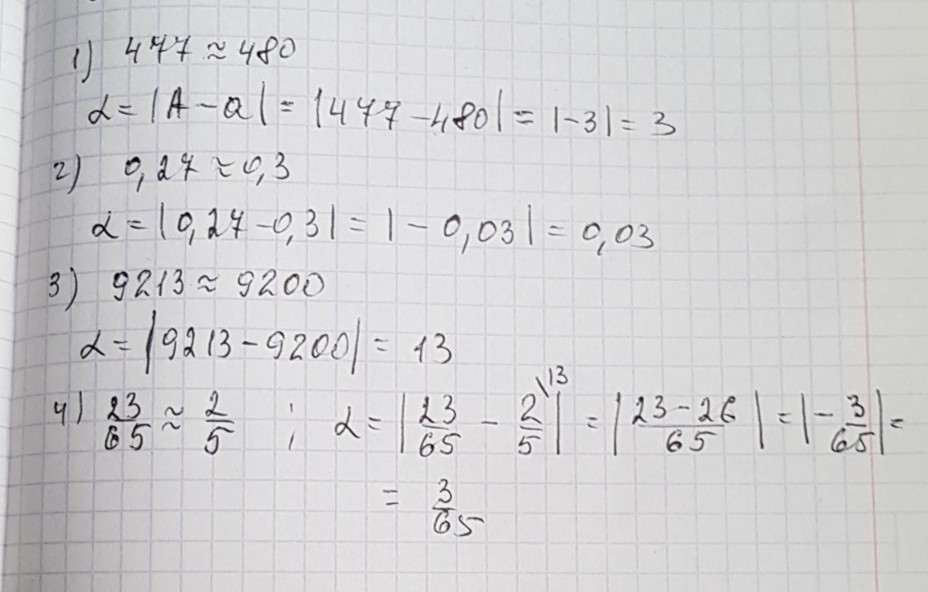 1) 477 ≈ 480
α = |A - a| = |477 - 480| = |-3| = 3
2) 0,27 ≈ 0,3
α = |0,27 - 0,3| = |-0,03| = 0,03
3) 9213 ≈ 9200
α = |9213 - 9200| = 13
4) 23/65 ≈ 2/5 ; α = |23/65 - 2/5 \13| = |(23 - 26)/65| = |-3/65| =
= 3/65